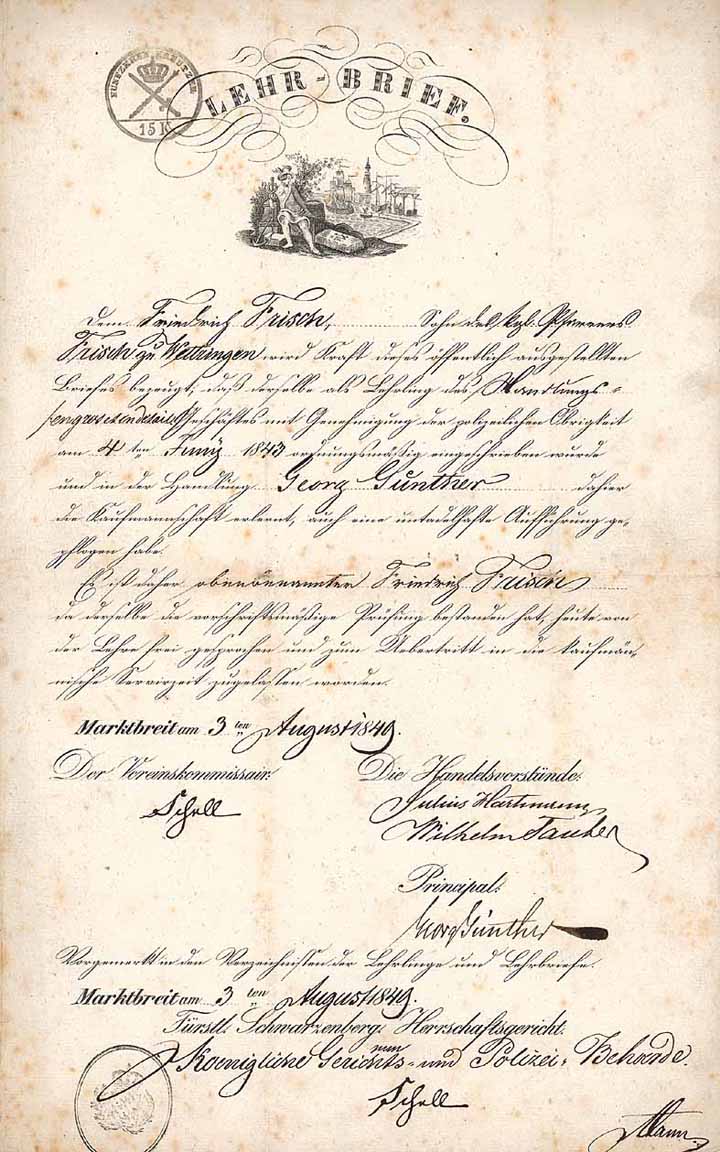 FÜNFZEHN KREUTZER
15 K
LEHR-BRIEF.
Dem Friedrich Frisch, Sohn des kgl. Pfarrers
Frisch zu Wettringen wird Kraft dieses öffentlich ausgestellten
Briefes bezeugt, daß derselbe als Lehrling des Handlungs-
(en gros et en detail) Geschäftes mit Genehmigung der polizeilichen Obrigkeit
am 4 ten Juny 1843 ordnungsmäßig eingeschrieben wurde
und in der Handlung Georg Günther dahier
die Kaufmannschaft erlernt, auch eine untadelhafte Aufführung ge-
pflogen habe.
Es ist daher obenbenannter Friedrich Frisch
da derselbe die vorschriftsmäßige Prüfung bestanden hat, heute von
der Lehre frei gesprochen und zum Uebertritt in die kaufmän-
nische Servirzeit zugelassen worden.
Marktbreit am 3 ten August 1849.
Der Vereinskommissair:
Die Handelsvorstände:
Schell
Julius Hartmann
Wilhelm Tauber
Principal:
Georg Günther
Vorgemerkt in den Verzeichnissen der Lehrlinge und Lehrbriefe.
Marktbreit am 3 ten August 1849.
Fürstl. Schwarzenberg. Herrschaftsgericht.
nun
Koenigliche Gerichts- und Polizei-Behoerde.
Schell